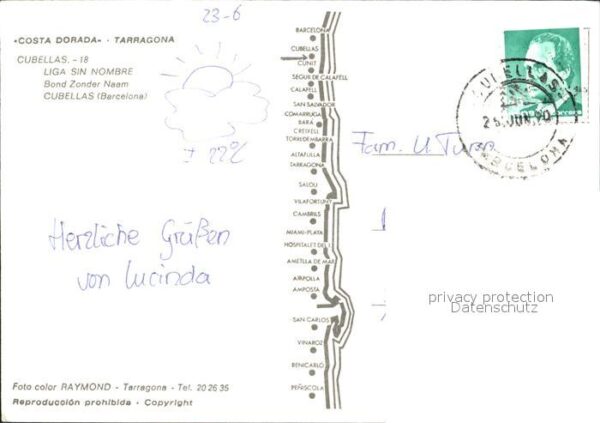 23-6
«COSTA DORADA» - TARRAGONA
CUBELLAS. - 18
LIGA SIN NOMBRE
Bond Zonder Naam
CUBELLAS (Barcelona)
± 22°C
Herzliche Grüßen
von Lucinda
Foto color RAYMOND - Tarragona - Tel. 20 26 35
Reproducción prohibida - Copyright
BARCELONA
CUBELLAS
CUNIT
SEGUR DE CALAFELL
CALAFELL
SAN SALVADOR
COMARRUGA
BARÁ
CREIXELL
TORREDEMBARRA
ALTAFULLA
TARRAGONA
SALOU
VILAFORTUNY
CAMBRILS
MIAMI-PLAYA
HOSPITALET DEL I.
AMETLLA DE MAR
AMPOLLA
AMPOSTA
SAN CARLOS
VINAROZ
BENICARLÓ
PEÑISCOLA
CUBELLAS
25 JUN. 90
BARCELONA
Fam. U. Turan
privacy protection
Datenschutz